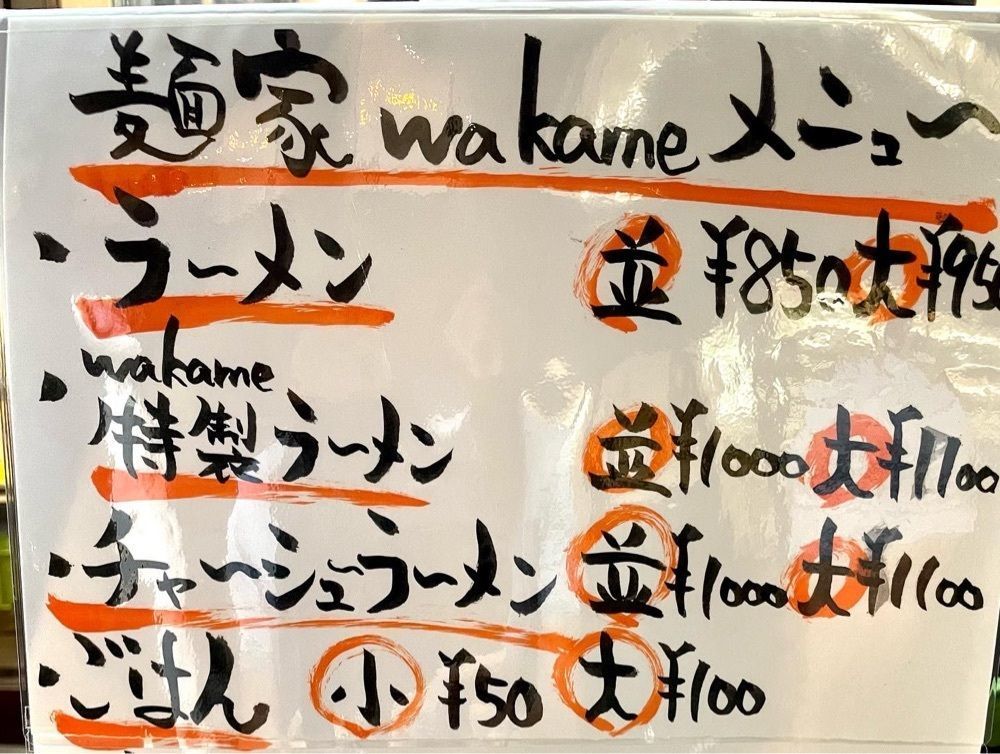 麺家 wakame メニュー
・ラーメン 並 ¥850 大 ¥950
・wakame
特製ラーメン 並 ¥1000 大 ¥1100
・チャーシューラーメン 並 ¥1000 大 ¥1100
・ごはん 小 ¥50 大 ¥100